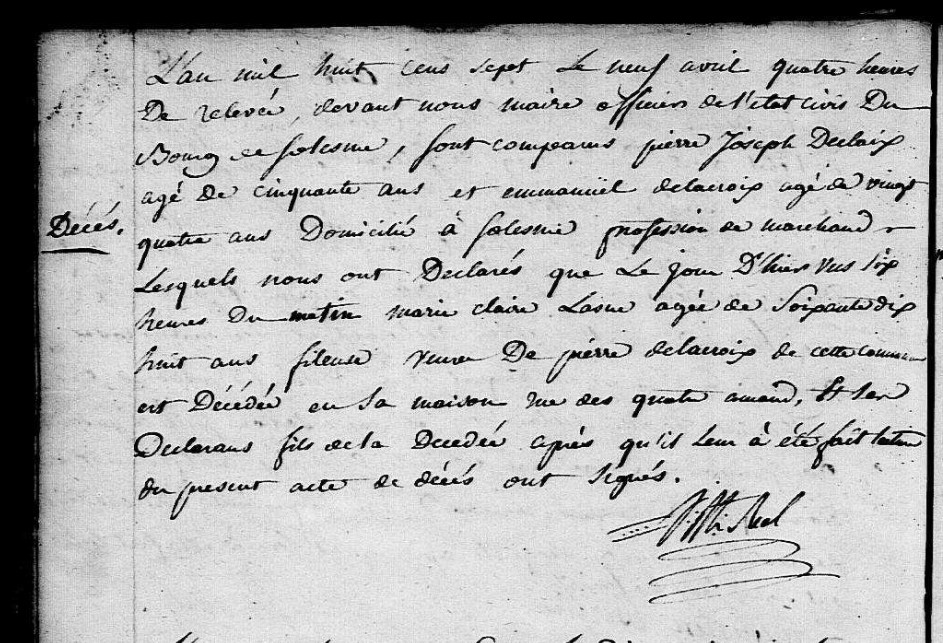 L'an mil huit cens sept le neuf avril quatre heures
De relevée, devant nous maire officier de l'état civil Du
Bourg de Solesme, sont comparus pierre Joseph Declaix
agé de cinquante ans et emmanüel delacroix agé de vingt
Décés.
quatre ans Domicilié à Solesme profession de marchand
Lesquels nous ont Declarés que Le jour D'hier vers six
heures Du matin marie claire Lasne agée de Soixante dix
huit ans fileuse veuve De pierre delacroix de cette commune
est Décédée en sa maison rue des quatre amand, et les
Declarans fils de la Decedée après qu'il leur à été fait lecture
du present acte de décés ont signés.